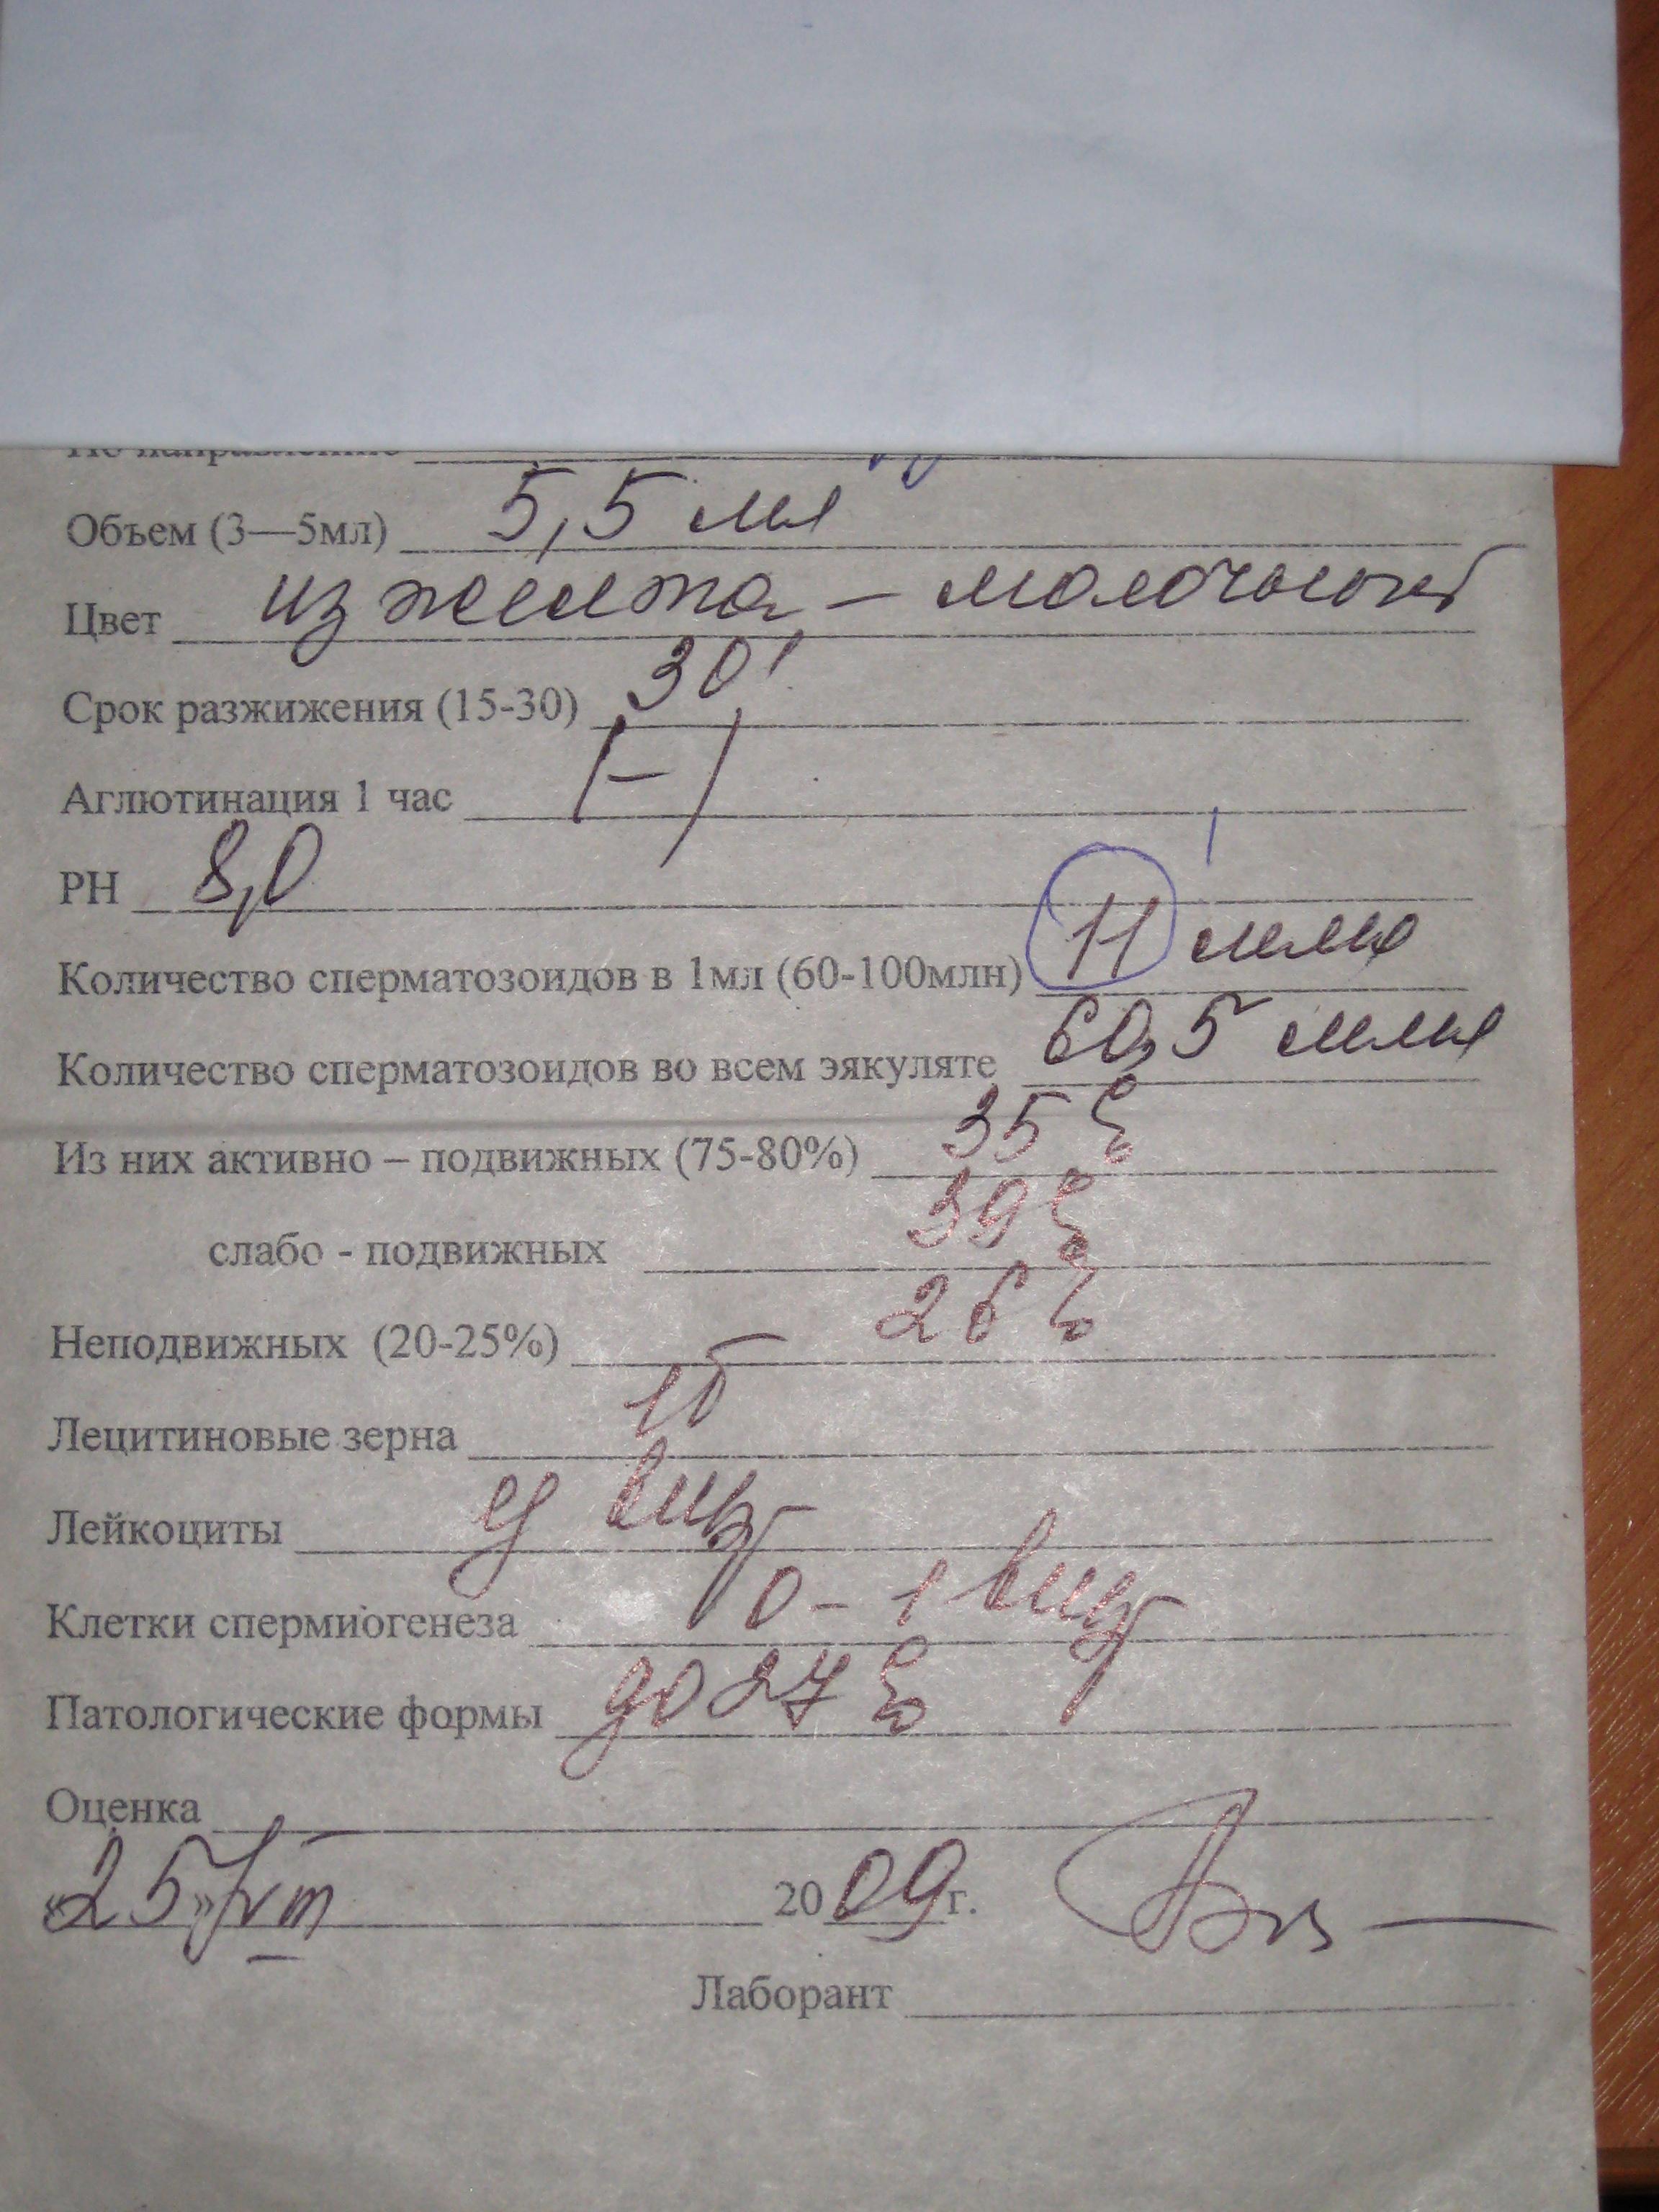 По направлению
Объем (3—5мл) 5,5 мл
Цвет из желта - молочный
Срок разжижения (15-30) 30'
Аглютинация 1 час (-)
РН 8,0
Количество сперматозоидов в 1мл (60-100млн) 11 млн
Количество сперматозоидов во всем эякуляте 60,5 млн
Из них активно – подвижных (75-80%) 35%
слабо - подвижных 39%
Неподвижных (20-25%) 26%
Лецитиновые зерна
Лейкоциты в п/з
Клетки спермиогенеза 0-1 в п/з
Патологические формы до 27%
Оценка
«25» 2009г.
Лаборант